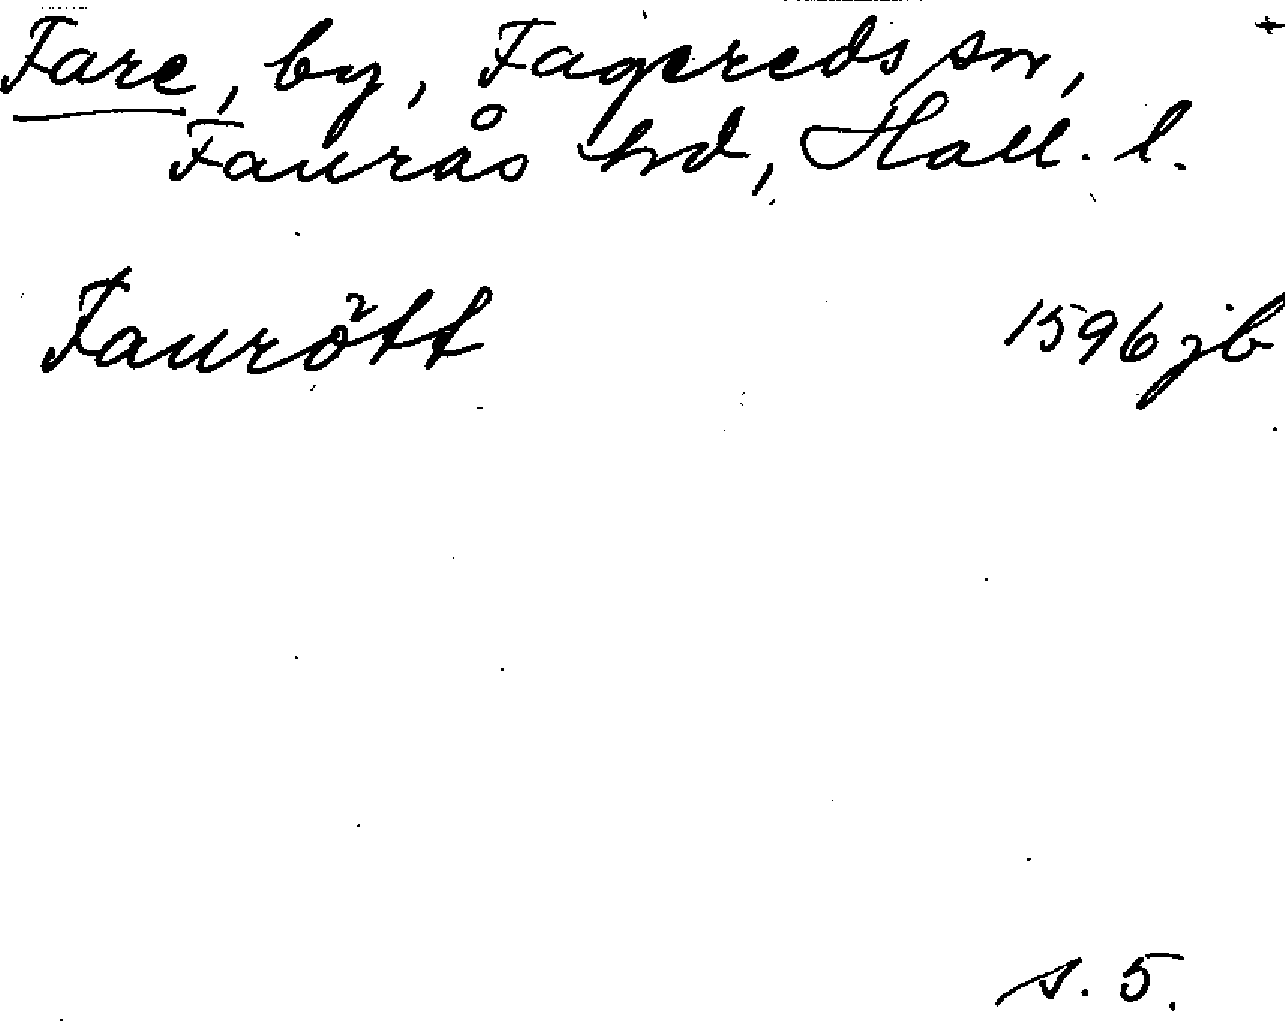 Fare, by, Fagereds sn,
Faurås hd, Hall. l.
Faurött 1596 jb
s. 5.